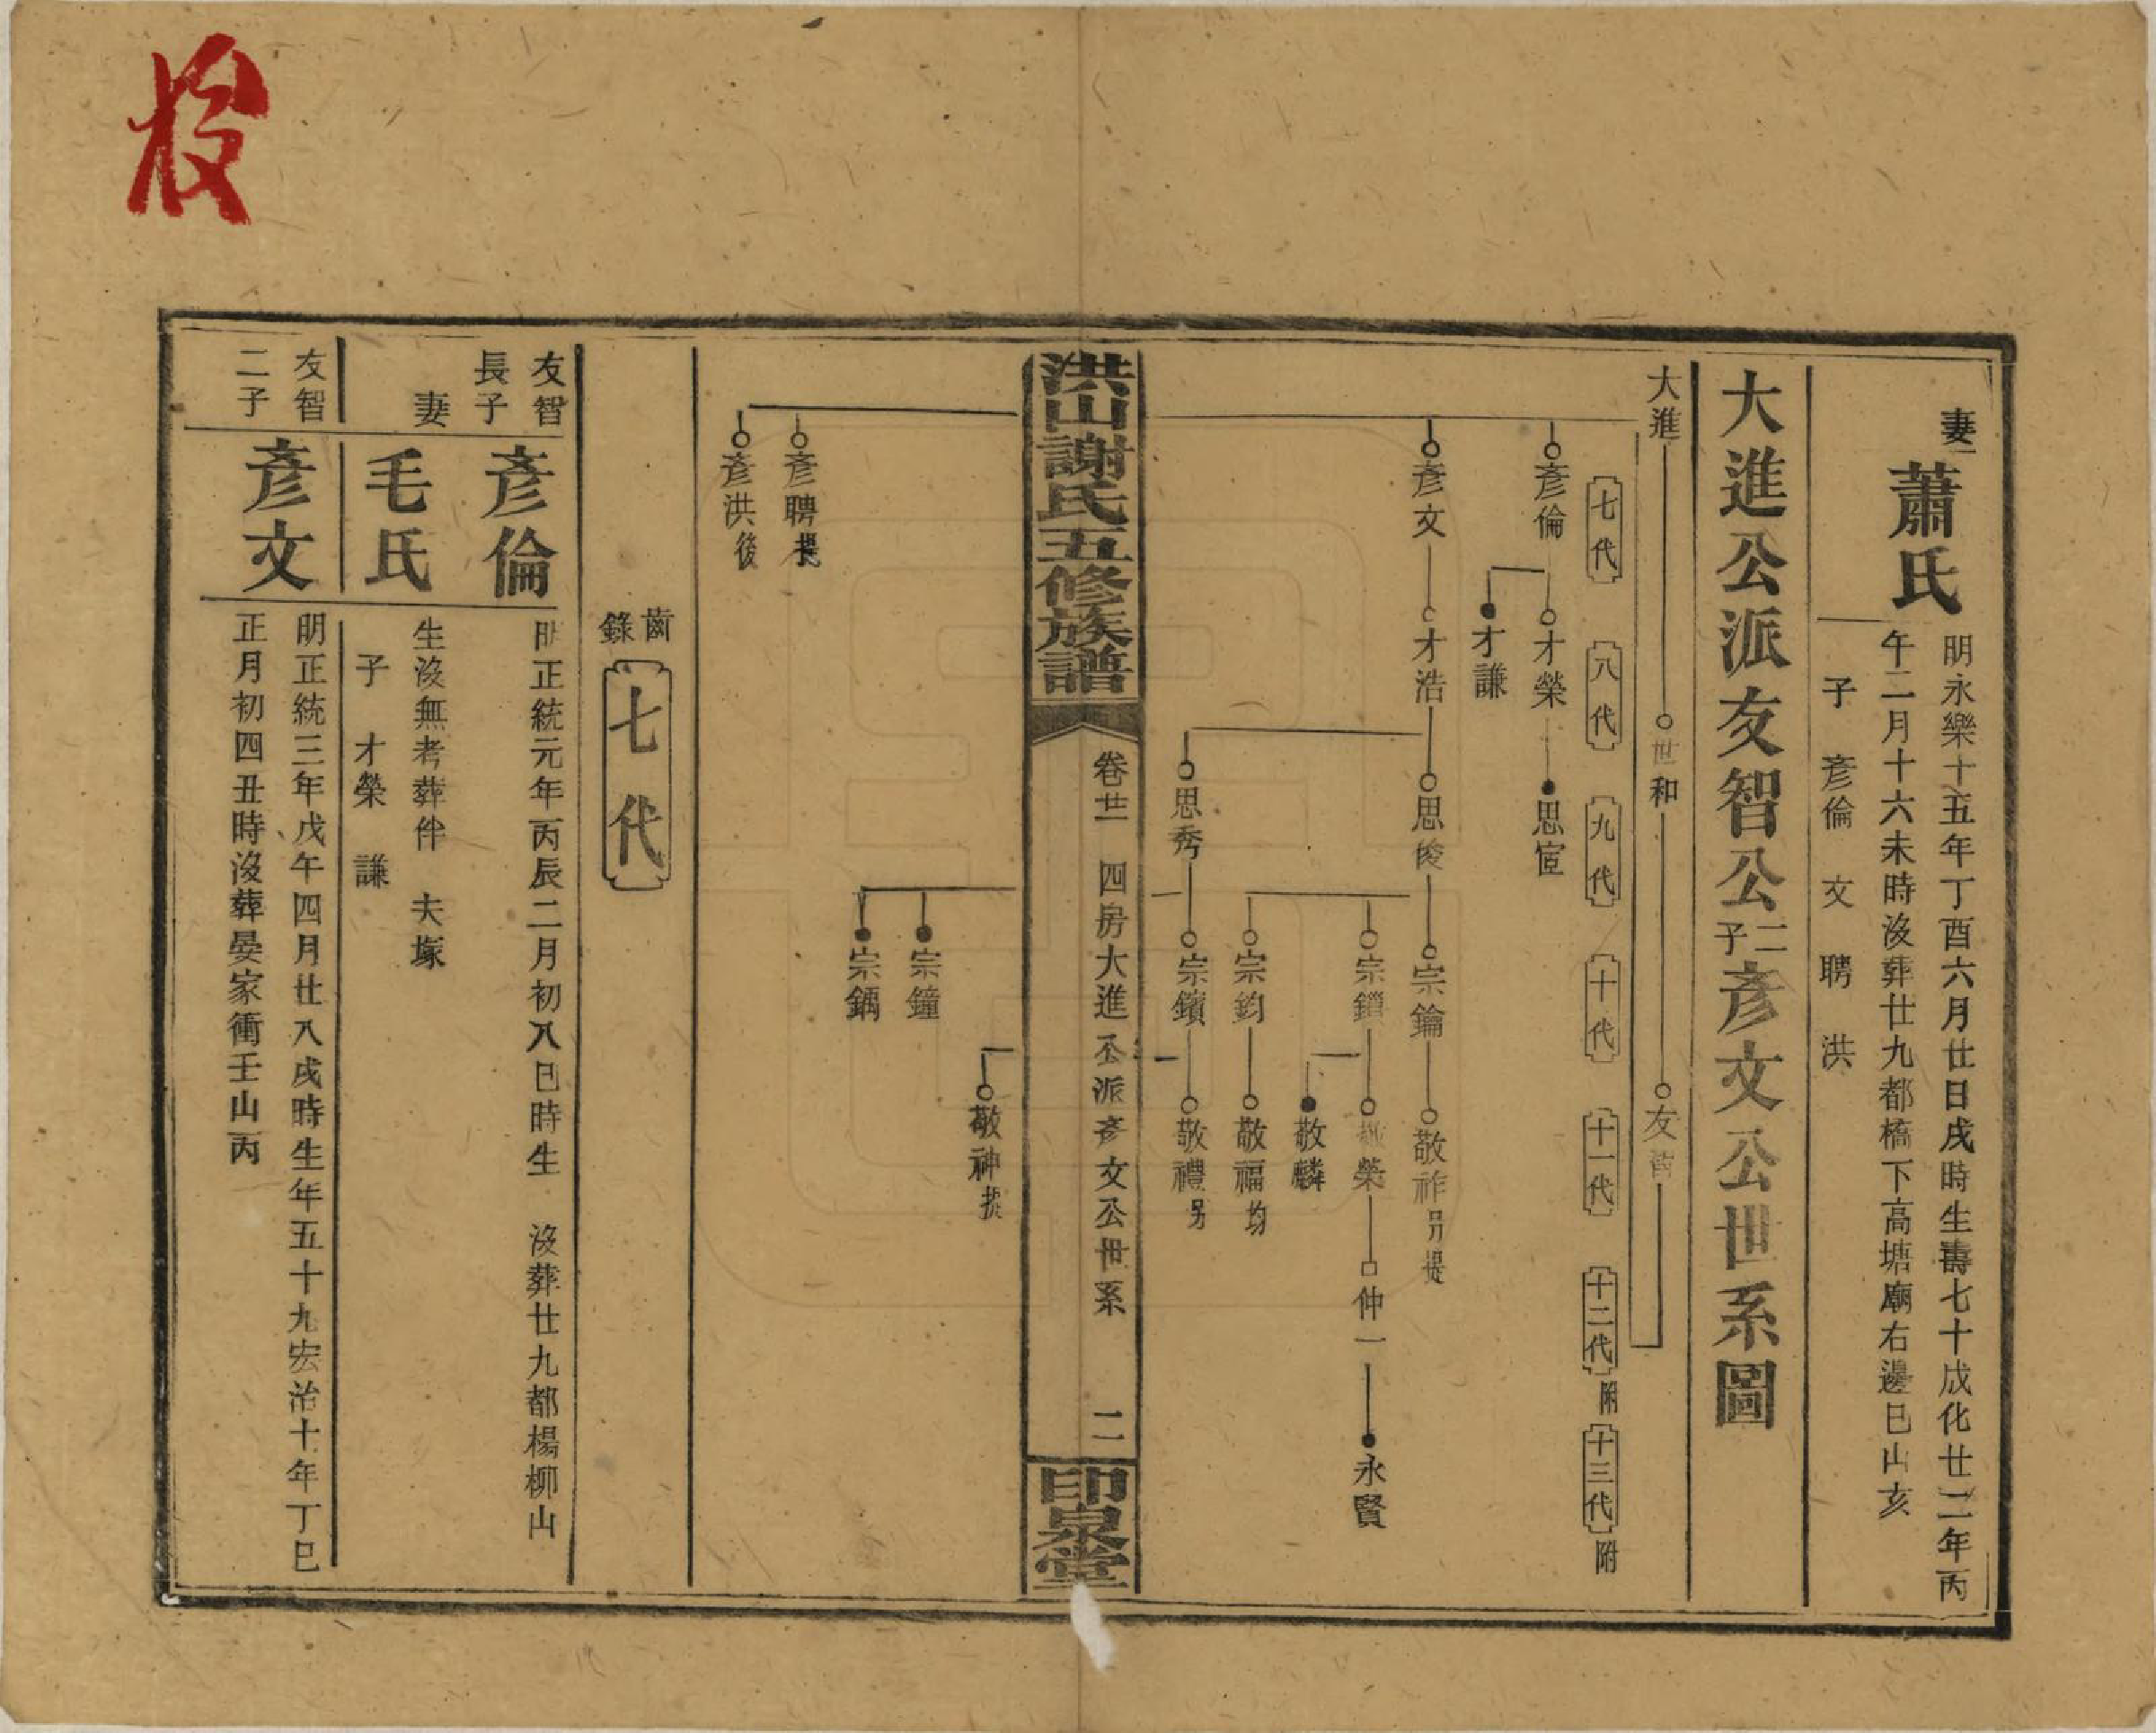 妻
蕭氏
明永樂十五年丁酉六月廿日戌時生壽七十成化廿二年丙
午二月十六未時沒葬廿九都橋下高塘廟右邊巳山亥
子 彥倫 文 聘 洪
大進公派友智公二子彥文公世系圖
大進 世和 友智
七代 八代 九代 十代 十一代 十二代 附 十三代 附
彥倫 才榮 思宦
才謙
彥文 才浩 思俊 宗鑰 敬祚 另提
宗鎖 敬榮 仲一 永賢
敬麟
宗鈞 敬福 均
思秀 宗鑌 敬禮 另
洪山謝氏五修族譜
卷廿一 四房大進公派彥文公世系 二
印泉堂
敬神 提
宗鐘
宗鍝
彥聘 提
彥洪 後
齒錄 七代
友智長子
彥倫
明正統元年丙辰二月初八巳時生 沒葬廿九都楊柳山
妻
毛氏
生沒無考葬伴 夫塚
子 才榮 謙
友智二子
彥文
明正統三年戊午四月廿八戌時生年五十九宏治十年丁巳
正月初四丑時沒葬晏家衝壬山丙